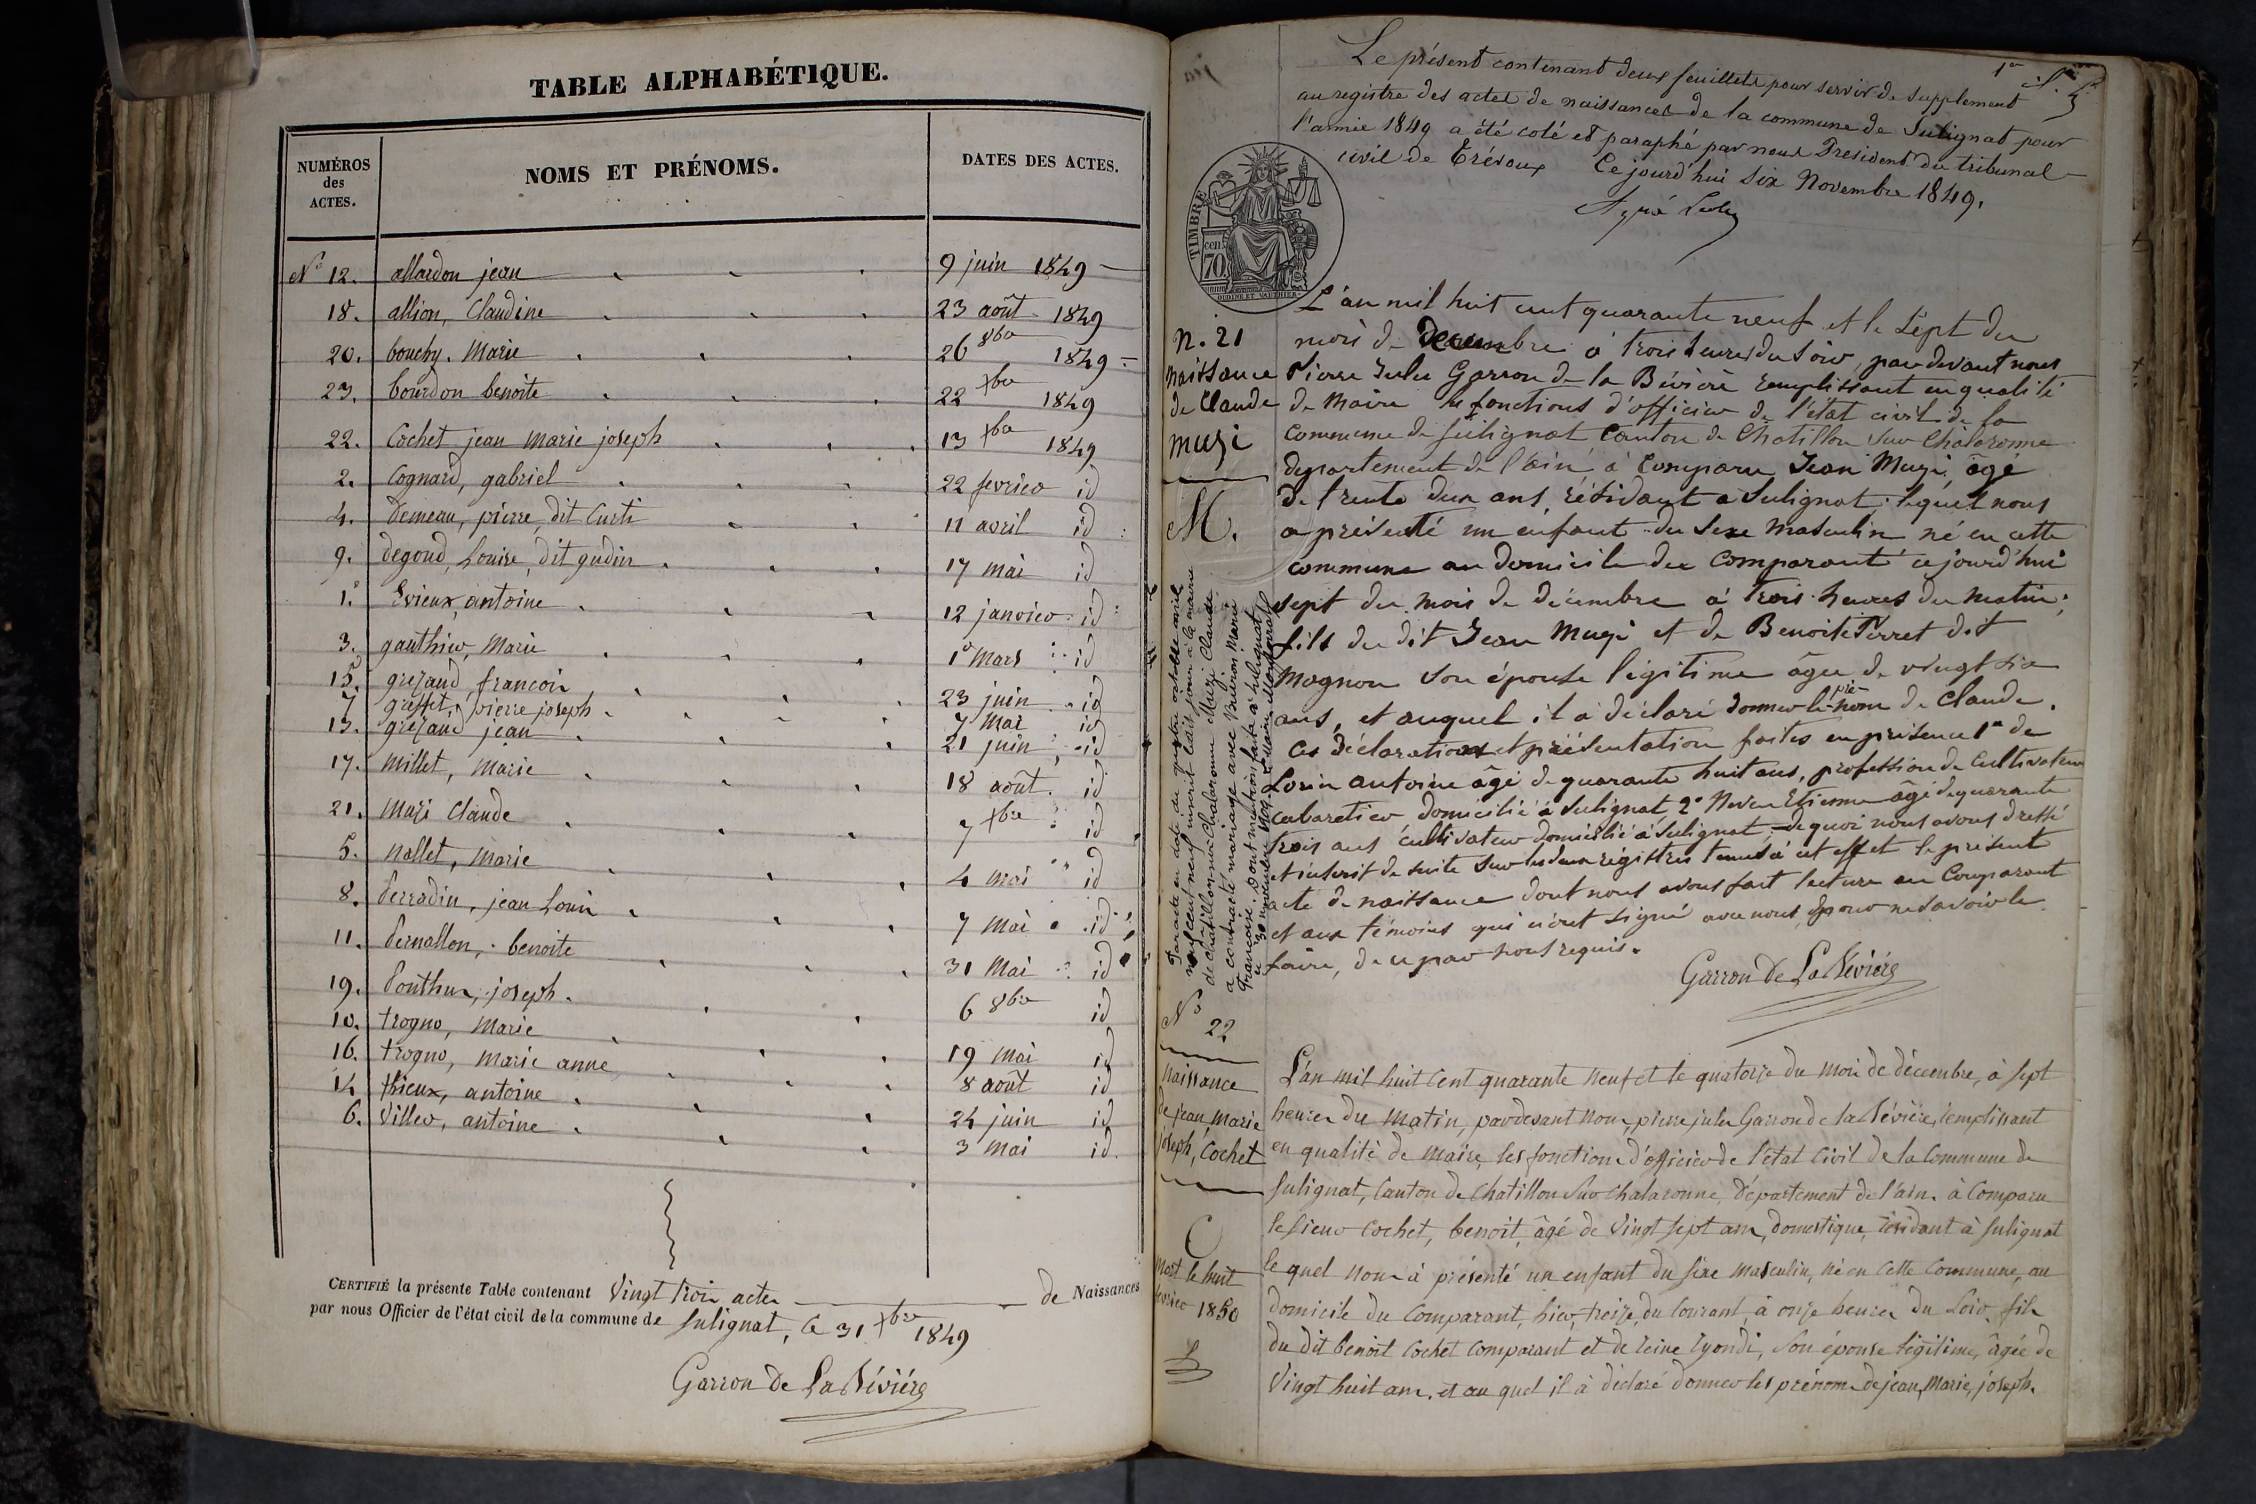 TABLE ALPHABÉTIQUE.
NUMÉROS des ACTES.
NOMS ET PRÉNOMS.
DATES DES ACTES.
No 12. allardon jean 9 juin 1849
18. allion, Claudine 23 août 1849
20. bouchy. Marie 26 8bre 1849
23. bourdon benoite 22 xbre 1849
22. Cochet jean marie joseph 13 xbre 1849
2. Cognard, gabriel 22 fevrier id
4. Demeau, pierre, dit Curti 11 avril id
9. degoud, Louise, dit gudin 17 mai id
1. Evieux, antoine 12 janvier id
3. gauthier, Marie 1er Mars id
15. grezaud, francois 23 juin id
7 greffet, pierre joseph 7 mai id
13. grezaud jean 21 juin id
17. Millet, Marie 18 août id
21. Muzi Claude 7 xbre id
5. nallet, marie 4 mai id
8. Perradin, jean Louis 7 Mai id
11. Pernallon, benoite 31 Mai id
19. Ponthus, joseph. 6 8bre id
10. trogno, Marie 19 mai id
16. trogno, marie anne 8 août id
14 thieux, antoine 24 juin id
6. Villew, antoine 3 mai id.
CERTIFIÉ la présente Table contenant Vingt trois actes de Naissances
par nous Officier de l'état civil de la commune de Sulignat, Ce 31 xbre 1849
Garron de La Bévière
1er
Le présent contenant deux feuillets pour servir de supplement
au registre des actes de naissances de la commune de Sulignat pour
l'année 1849 a été coté et paraphé par nous Président du tribunal
civil de Trévoux Ce jourd'hui six Novembre 1849.
TIMBRE
cen. 70
OUDINÉ ET VAUTHIER
n. 21
naissance
de Claude
muzi
M.
L'an mil huit cent quarante neuf et le Sept du
mois de Decembre à trois heures du soir, par devant nous
Pierre Jules Garron de la Bévière remplissant en qualité
de Maire les fonctions d'officier de l'état civil de la
Commune de Sulignat Canton de Chatillon sur Chalaronne
département de l'ain à comparu Jean Muzi, âgé
de trente deux ans, résidant à Sulignat lequel nous
a présenté un enfant du sexe masculin né en cette
commune au domicile du comparant cejourd'hui
sept du mois de décembre à trois heures du matin;
fils du dit Jean Muzi et de Benoite Perret dit
Mognon son épouse légitime âgée de vingt six
ans, et auquel il a déclaré donner le prénom de Claude.
Ces déclarations et présentation faites en présence 1er de
Lorin antoine âgé de quarante huit ans, profession de Cultivateur
cabaretier domicilié à Sulignat, 2e Etienne agé de quarante
trois ans cultivateur domicilié à Sulignat; de quoi nous avons dressé
et inscrit de suite sur les deux régistres tenus à cet effet le présent
acte de naissance dont nous avons fait lecture au Comparant
et aux témoins qui n'ont signé avec nous pour ne savoir le
faire, de ce par nous requis.
Garron de La Bévière
Par acte en date du quatre octobre mil
neuf cent neuf inscrit ledit jour à la mairie
de chatillon sur Chalaronne Muzi Claude
a contracté mariage avec Buiron Marie
Françoise. Dont mention faite à Sulignat
le 30 novembre 1909. Le Maire
No
22
naissance
de jean, Marie
joseph, Cochet
C
mort le huit
fevrier 1850
L'an mil huit Cent quarante neuf et le quatorze du mois de décembre, à sept
heures du matin, pardevant nous, pierre jules Garron de la Bévière, remplissant
en qualité de Maire, les fonctions d'officier de l'état Civil de la Commune de
Sulignat, Canton de Chatillon sur chalaronne, Département de l'ain. à Comparu
le sieur Cochet, benoit, âgé de Vingt sept ans, domestique, résidant à sulignat
le quel nous à présenté un enfant du sexe masculin, né en Cette Commune, au
domicile du Comparant, hier, treize, du Courant, à onze heures du soir, fils
du dit benoit Cochet Comparant et de reine Lyondi, Son épouse légitime, âgée de
Vingt huit ans, et au quel il à déclaré donner les prénoms de jean, Marie, joseph.